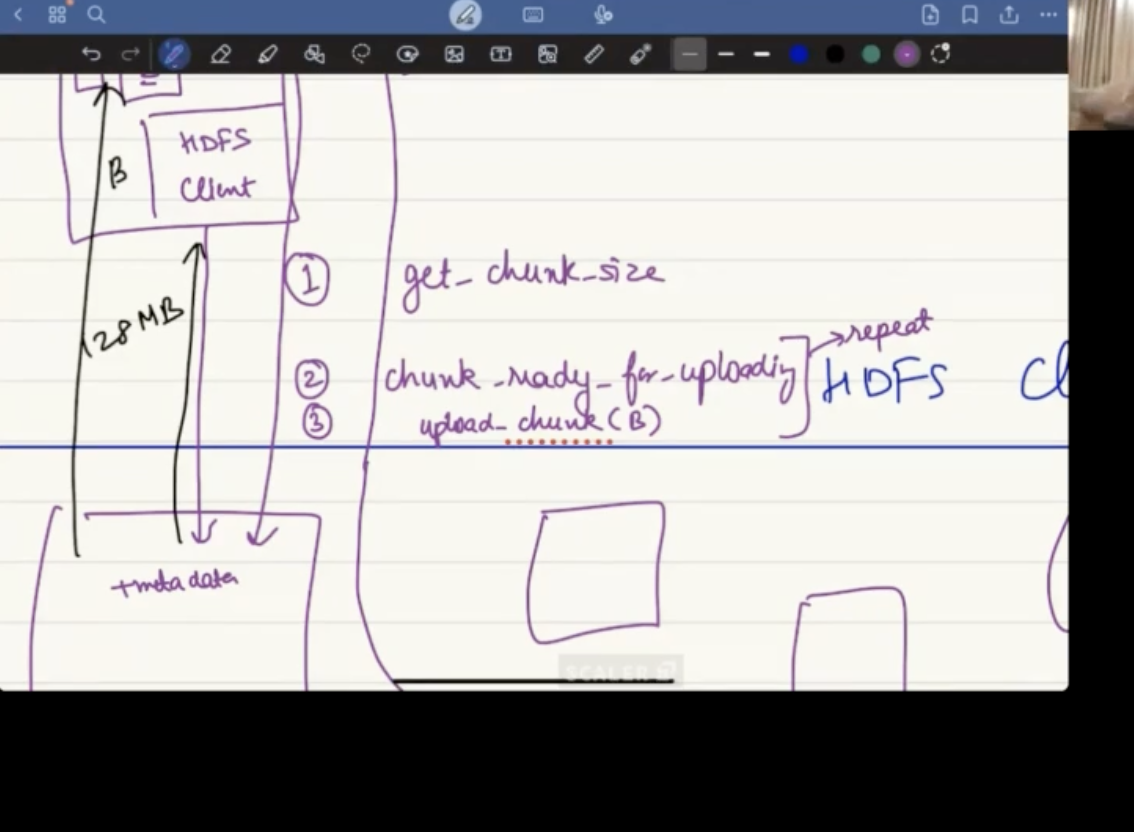 HDFS
Client
B
128 MB
① get_chunk_size
② chunk_ready_for_uploading
③ upload_chunk(B)
repeat
HDFS Cl
+metadata
SCALER